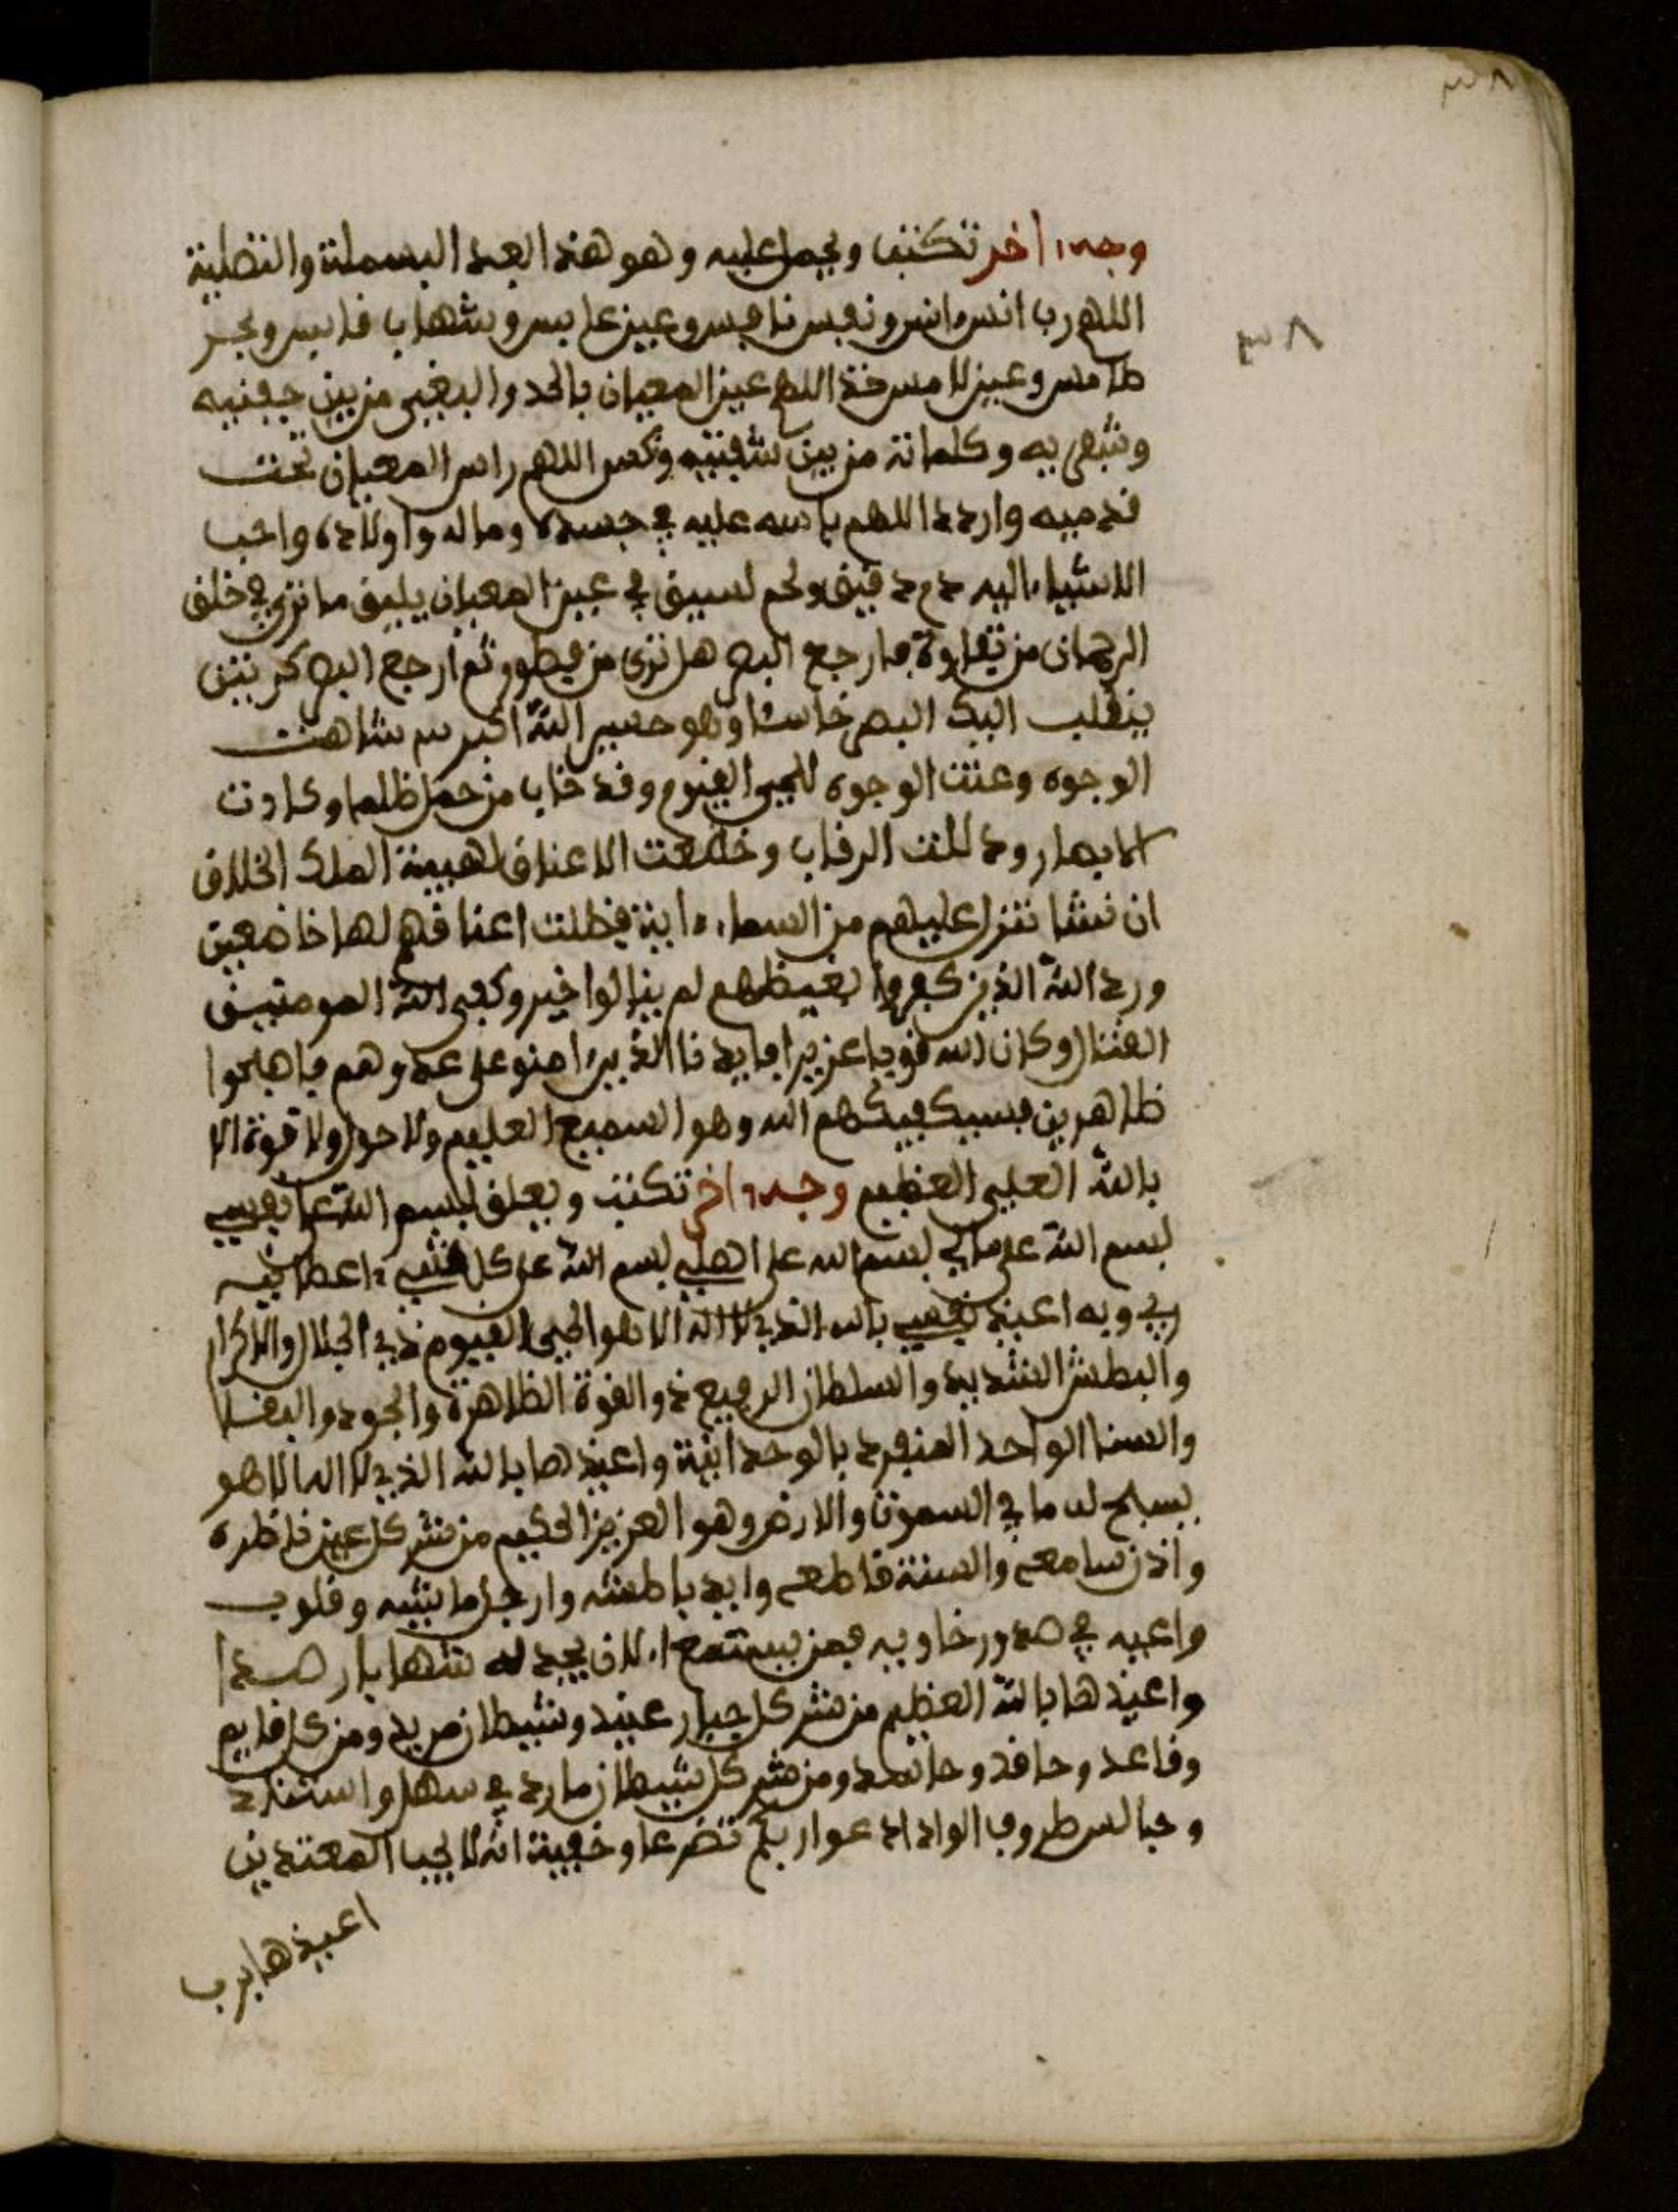 ٣٨
٣٨
وجه اخر تكتب ويحمل عليه وهو هذا العمد البسملة والتصلية
اللهم رب انس انس ونفس نافس وعين عابس وشهاب قابس وحجر
طامس وعين لامس خذ اللهم عين المعيان بالحد والبغي من بين جفنيه
وشفريه وكلماته من بين شفتيه ونكس اللهم راس المعيان تحت
قدميه واردد اللهم باسه عليه في جسده وماله واولاده واحب
الاشياء اليه دم دقيق ولحم لسيق في عين المعيان يليق ما ترى في خلق
الرحمان من تفاوة فارجع البصر هل ترى من فطور ثم ارجع البصر كرتين
ينقلب اليك البصر خاسئا وهو حسير الله اكبر شاهت
الوجوه وعنت الوجوه للحي القيوم وقد خاب من حمل ظلما وكلات
الابصار وذللت الرقاب وخضعت الاعناق لهيبة الملك الخلاق
ان نشا ننزل عليهم من السماء اية فظلت اعناقهم لها خاضعين
ورد الله الذين كفروا بغيظهم لم ينالوا خير وكفى الله المومنين
القتال وكان الله قويا عزيزا فايدنا الذين امنو على عدوهم فاصبحوا
ظاهرين فسيكفيكهم الله وهو السميع العليم ولا حول ولا قوة الا
بالله العلي العظيم وجه اخر تكتب ويعلق لبسم الله على نفسي
بسم الله على مالي بسم الله على اهلي بسم الله على كل شيء اعطانيه
ربي وبه اعيذ نفسي بالله الذي لا اله الا هو الحي القيوم ذي الجلال والاكرام
والبطش الشديد والسلطان الرفيع ذو القوة الظاهرة والجود والفضل
والسنا الواحد المنفرد بالوحدانية واعيذها بالله الذي لا اله الا هو
يسبح له ما في السموت والارض وهو العزيز الحكيم من شر كل عين ناظره
واذن سامعه والسنة قاطعه وايد باطشه وارجل ماشيه وقلوب
واعيه في صدور خاويه فمن يستمع الان يجد له شهابا رصدا
واعيذها بالله العظيم من شر كل جبار عنيد وشيطان مريد ومن كل قايم
وقاعد وحاقد وحاسد ومن شر كل شيطان مارد في سهل واستناد
وحالس طروب ادعوا ربكم تضرعا وخفية انه لا يحب المعتدين
اعيذها برب